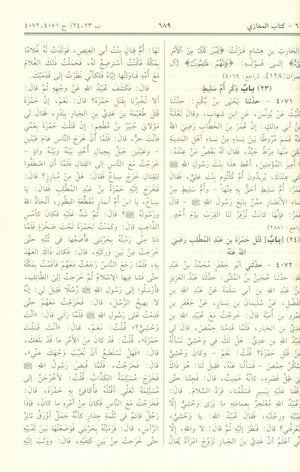 ٦ - كتاب المغازي
٦٨٩
ب ٢٣، ٢٤/ ح ٤٠٧١، ٤٠٧٢
الحارث بن هشام فنزلت ﴿ليس لك من الأمر
إلى قوله: ﴿فإنهم ظالمون﴾
(٢٣) باب ذكر أم سليط
٤٠٧١ - حدثنا يحيى بن بكير: حدثنا
الليث عن يونس، عن ابن شهاب، وقال ثعلبة
ابن أبي مالك: إن عمر بن الخطاب رضي الله
قسم مروطا بين نساء من نساء أهل المدينة
منها مرط جيد، فقال له بعض من عنده:
أمير المؤمنين، أعط هذا بنت رسول الله ﷺ
عندك، يريدون أم كلثوم بنت علي، فقال
عمر: أم سليط أحق به منها - وأم سليط من
نساء الأنصار ممن بايع رسول الله ﷺ - قال
عمر: فإنها كانت تزفر لنا القرب يوم أحد.
(٢٤) باب قتل حمزة بن عبد المطلب رضي
الله عنه
٤٠٧٢ - حدثني أبو جعفر محمد بن عبد
الله: حدثنا حجين بن المثنى: حدثنا عبد العزيز
الفضل، عن سليمان بن يسار، عن جعفر بن
عدي بن الخيار، فلما قدمنا حمص، قال لي
عبيد الله بن عدي: هل لك في وحشي نسأله
عن قتل حمزة؟ قلت: نعم - وكان وحشي
يسكن حمص - فسألنا عنه، فقيل لنا: هو ذاك
في ظل قصره، كأنه حميت، قال: فجئنا حتى
وقفنا عليه بيسير فسلمنا، فرد السلام. قال:
وعبيد الله معتجر بعمامته ما يرى وحشي إلا
عينيه ورجليه، فقال عبيد الله: يا وحشي،
أتعرفني؟ قال: فنظر إليه ثم قال: لا والله، إلا
أني أعلم أن عدي بن الخيار تزوج امرأة يقال
لها: أم قتال بنت أبي العيص، فولدت له غلاما
بمكة فكنت أسترضع له، فحملت ذلك الغلام
مع أمه فناولتها إياه فلكأني نظرت إلى قدميك،
قال: فكشف عبيد الله عن وجهه ثم قال:
ألا تخبرنا بقتل حمزة؟ قال: نعم، إن حمزة
قتل طعيمة بن عدي بن الخيار ببدر، فقال لي
مولاي جبير بن مطعم: إن قتلت حمزة بعمي
فأنت حر، قال: فلما أن خرج الناس عام عينين
- وعينين جبل بحيال أحد بينه وبينه واد -
خرجت مع الناس إلى القتال فلما أن اصطفوا
للقتال خرج سباع فقال: هل من مبارز؟ قال:
فخرج إليه حمزة بن عبد المطلب فقال: يا
سباع، يا ابن أم أنمار مقطعة البظور، أتحاد الله
ورسوله ﷺ؟ قال: ثم شد عليه فكان كأمس
الذاهب، قال: وكمنت لحمزة تحت صخرة فلما
دنا مني رميته بحربتي فأضعها في ثنته حتى
خرجت من بين وركيه، قال: فكان ذاك العهد
به، فلما رجع الناس رجعت معهم فأقمت بمكة
حتى فشا فيها الإسلام ثم خرجت إلى الطائف،
فأرسلوا إلى رسول الله ﷺ رسلا فقيل لي: إنه
لا يهيج الرسل، قال: فخرجت معهم حتى
قدمت على رسول الله ﷺ فلما رآني قال: «آنت
وحشي؟» قلت: نعم، قال: «أنت قتلت
حمزة؟» قلت: قد كان من الأمر ما قد بلغك،
قال: «فهل تستطيع أن تغيب وجهك عني»،
قال: فخرجت، فلما قبض رسول الله ﷺ
فخرج مسيلمة الكذاب قلت: لأخرجن إلى
مسيلمة لعلي أقتله فأكافئ به حمزة، قال:
فخرجت مع الناس فكان من أمره ما كان، فإذا
رجل قائم في ثلمة جدار كأنه جمل أورق ثائر
الرأس، قال: فرميته بحربتي فوضعتها بين ثدييه
حتى خرجت من بين كتفيه، قال: ووثب إليه